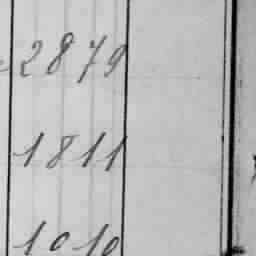 2879
1811
1010